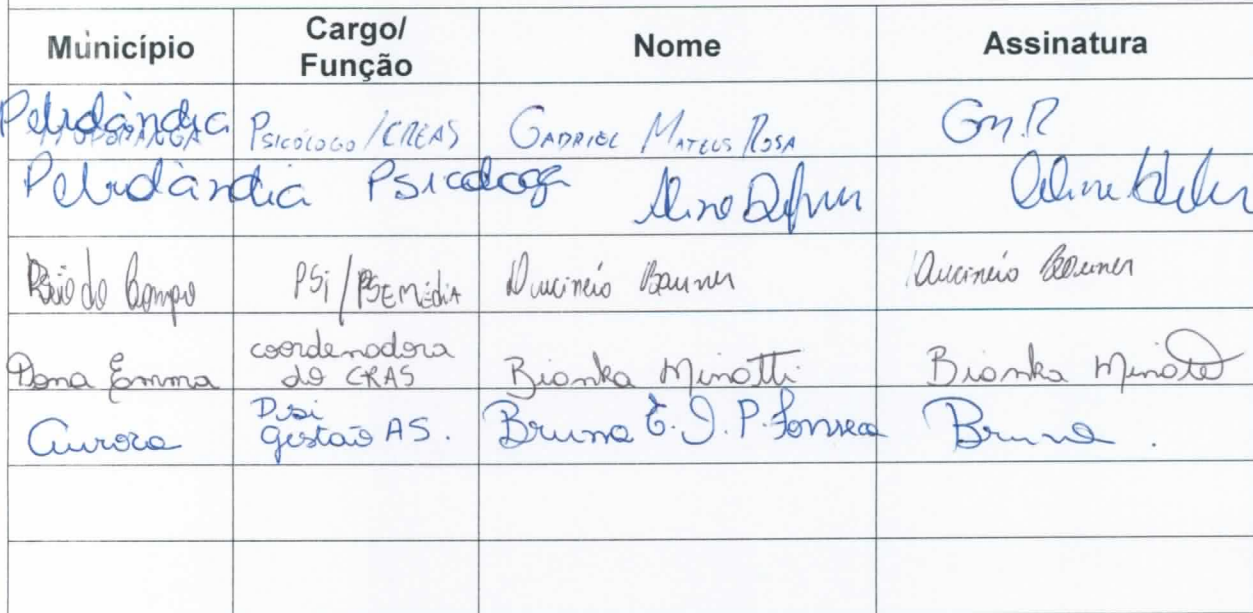 Município Cargo/ Função Nome Assinatura
Petrolândia Psicólogo/CREAS GABRIEL MATEUS ROSA G.M.R
Petrolândia Psicóloga Aline
Rio do Campo PSi/PSE Média
Dona Emma coordenadora do CRAS Bianka Minatti Bianka Minatti
Aurora Psi gestão AS. Bruna E. J. P. Fonseca Bruna.